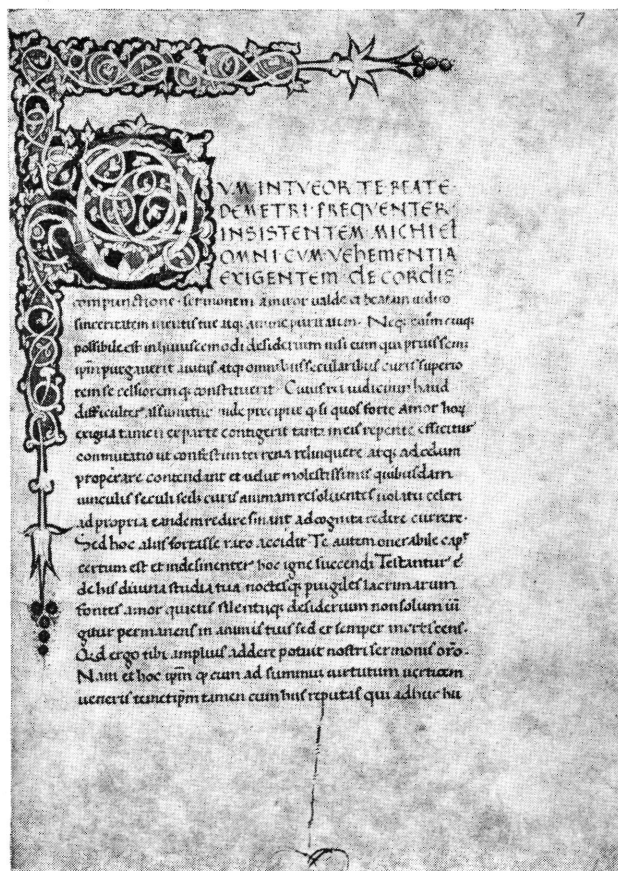 7
CVM INTVEOR TE BEATE
DEMETRI FREQVENTER
INSISTENTEM MICHI Et
OMNI CVM VEHEMENTIA
EXIGENTEM de CORdIS
compunctione sermonem amiror ualde et beatam iudico
sinceritatem mentis tue atq; anime puritatem. Neq; enim cuiq;
possibile est in huiuscemodi desiderium nisi eum qui prius semet
ipm purgauerit antius atq; omnibus secularibus curis superio
rem se celsiorem q; constituerit. Cuius rei iudicium haud
difficulter assumitur inde precipue q; si quos forte Amor hoc
exigua tamen ex parte contigerit tanta in eis repente efficitur
conmutatio ut confestim terrena relinquere atq; ad celum
properare contendant et uelut molestissimis quibusdam
uinculis seculi curis animam resoluentes uolatu celeri
ad propria eandem redire sinant ad cognita redire currere.
Sed hoc aliis fortasse raro accidit Te autem onerabile capt
certum est et indesinenter hoc igne succendi Testantur &
de his diuina studia tua noctesq; puigiles lacrimarum
fontes amor quietis silentiiq; desiderium non solum
gitur permanens in animis tuis sed et semper
Qd ergo tibi amplius addere potuit nostri sermonis oro.
Nam et hoc ipm q; cum ad summum uirtutum uerticem
ueneris temetipm tamen cum his reputas qui adhuc hu